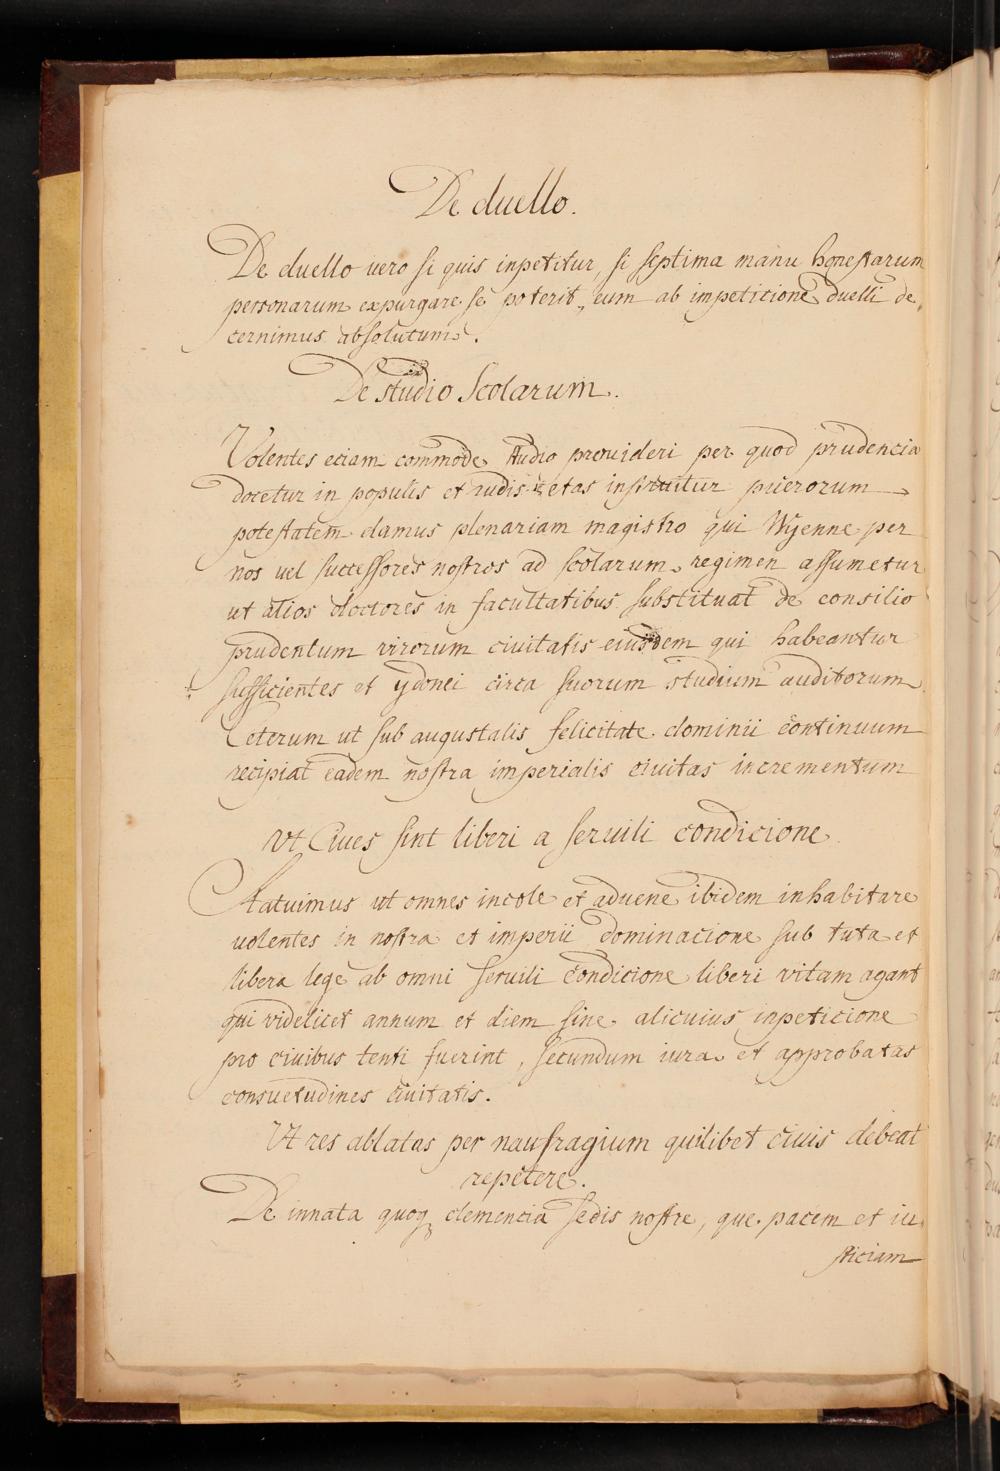 De duello.
De duello vero si quis inpetitur, si septima manu honestarum
personarum expurgare se poterit, eum ab impeticione duelli de,
cernimus absolutum.
De studio Scolarum.
Volentes eciam commode studio prouideri per quod prudencia
docetur in populis et rudis etas instruitur puerorum
potestatem damus plenariam magistro qui Wyenne per
nos uel successores nostros ad scolarum regimen assumetur
ut alios doctores in facultatibus substituat de consilio
prudentum virorum ciuitatis eiusdem qui habeantur
sufficientes et ydonei circa suorum studium auditorum
Ceterum ut sub augustalis felicitate dominii continuum
recipiat eadem nostra imperialis ciuitas incrementum
Vt Ciues sint liberi a seruili condicione
Statuimus ut omnes incole et aduene ibidem inhabitare
uolentes in nostra et imperii dominacione sub tuta et
libera lege ab omni seruili condicione liberi vitam agant
qui videlicet annum et diem sine alicuius inpeticione
pro ciuibus tenti fuerint, secundum iura et approbatas
consuetudines ciuitatis.
Vt res ablatas per naufragium quilibet ciuis debeat
repetere.
De innata quoq clemencia sedis nostre, que pacem et iu,
sticiam